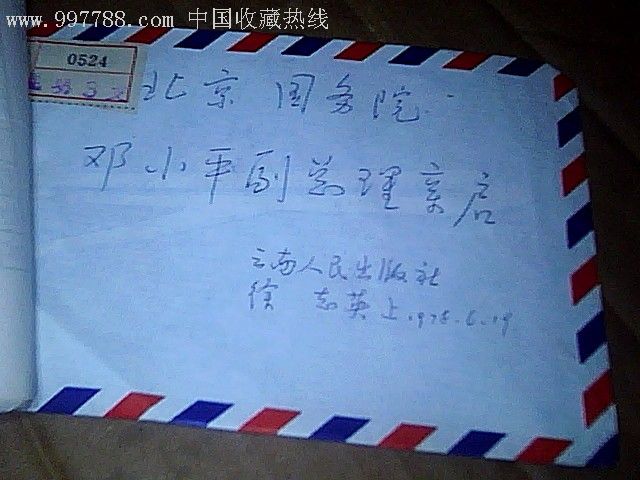 www.997788.com 中国收藏热线
0524
北京 国务院
邓小平副总理亲启
云南人民出版社
徐志英上.1978.6.19